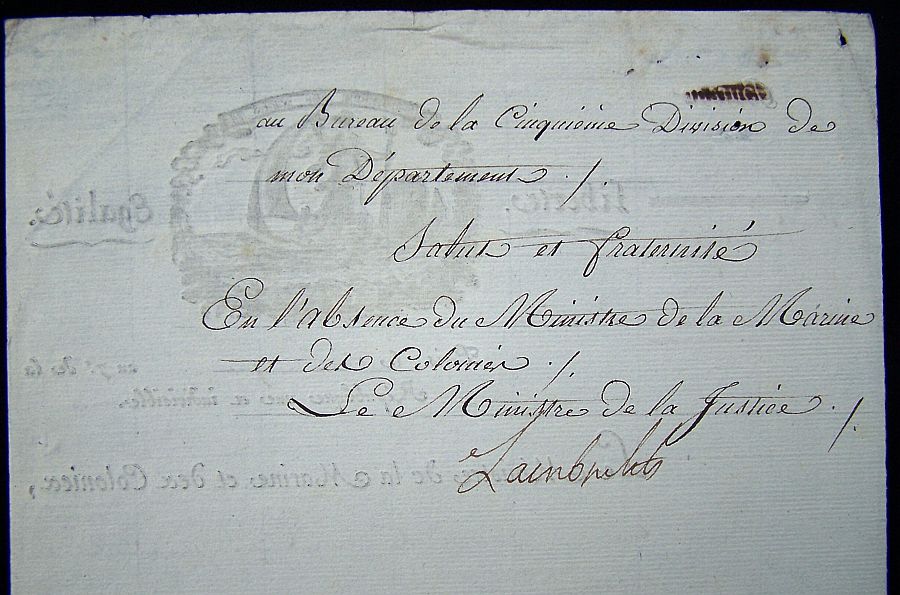 au Bureau de la Cinquième Division de
mon Département ./.
Salut et fraternité
En l'absence du Ministre de la Marine
et des Colonies ./.
Le Ministre de la Justice ./.
Lambrechts
Egalité.
Liberté.
an 7.e de la
République une et indivisible.
de la Marine et des Colonies,